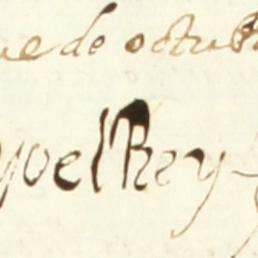 ue de octub
yo el Rey